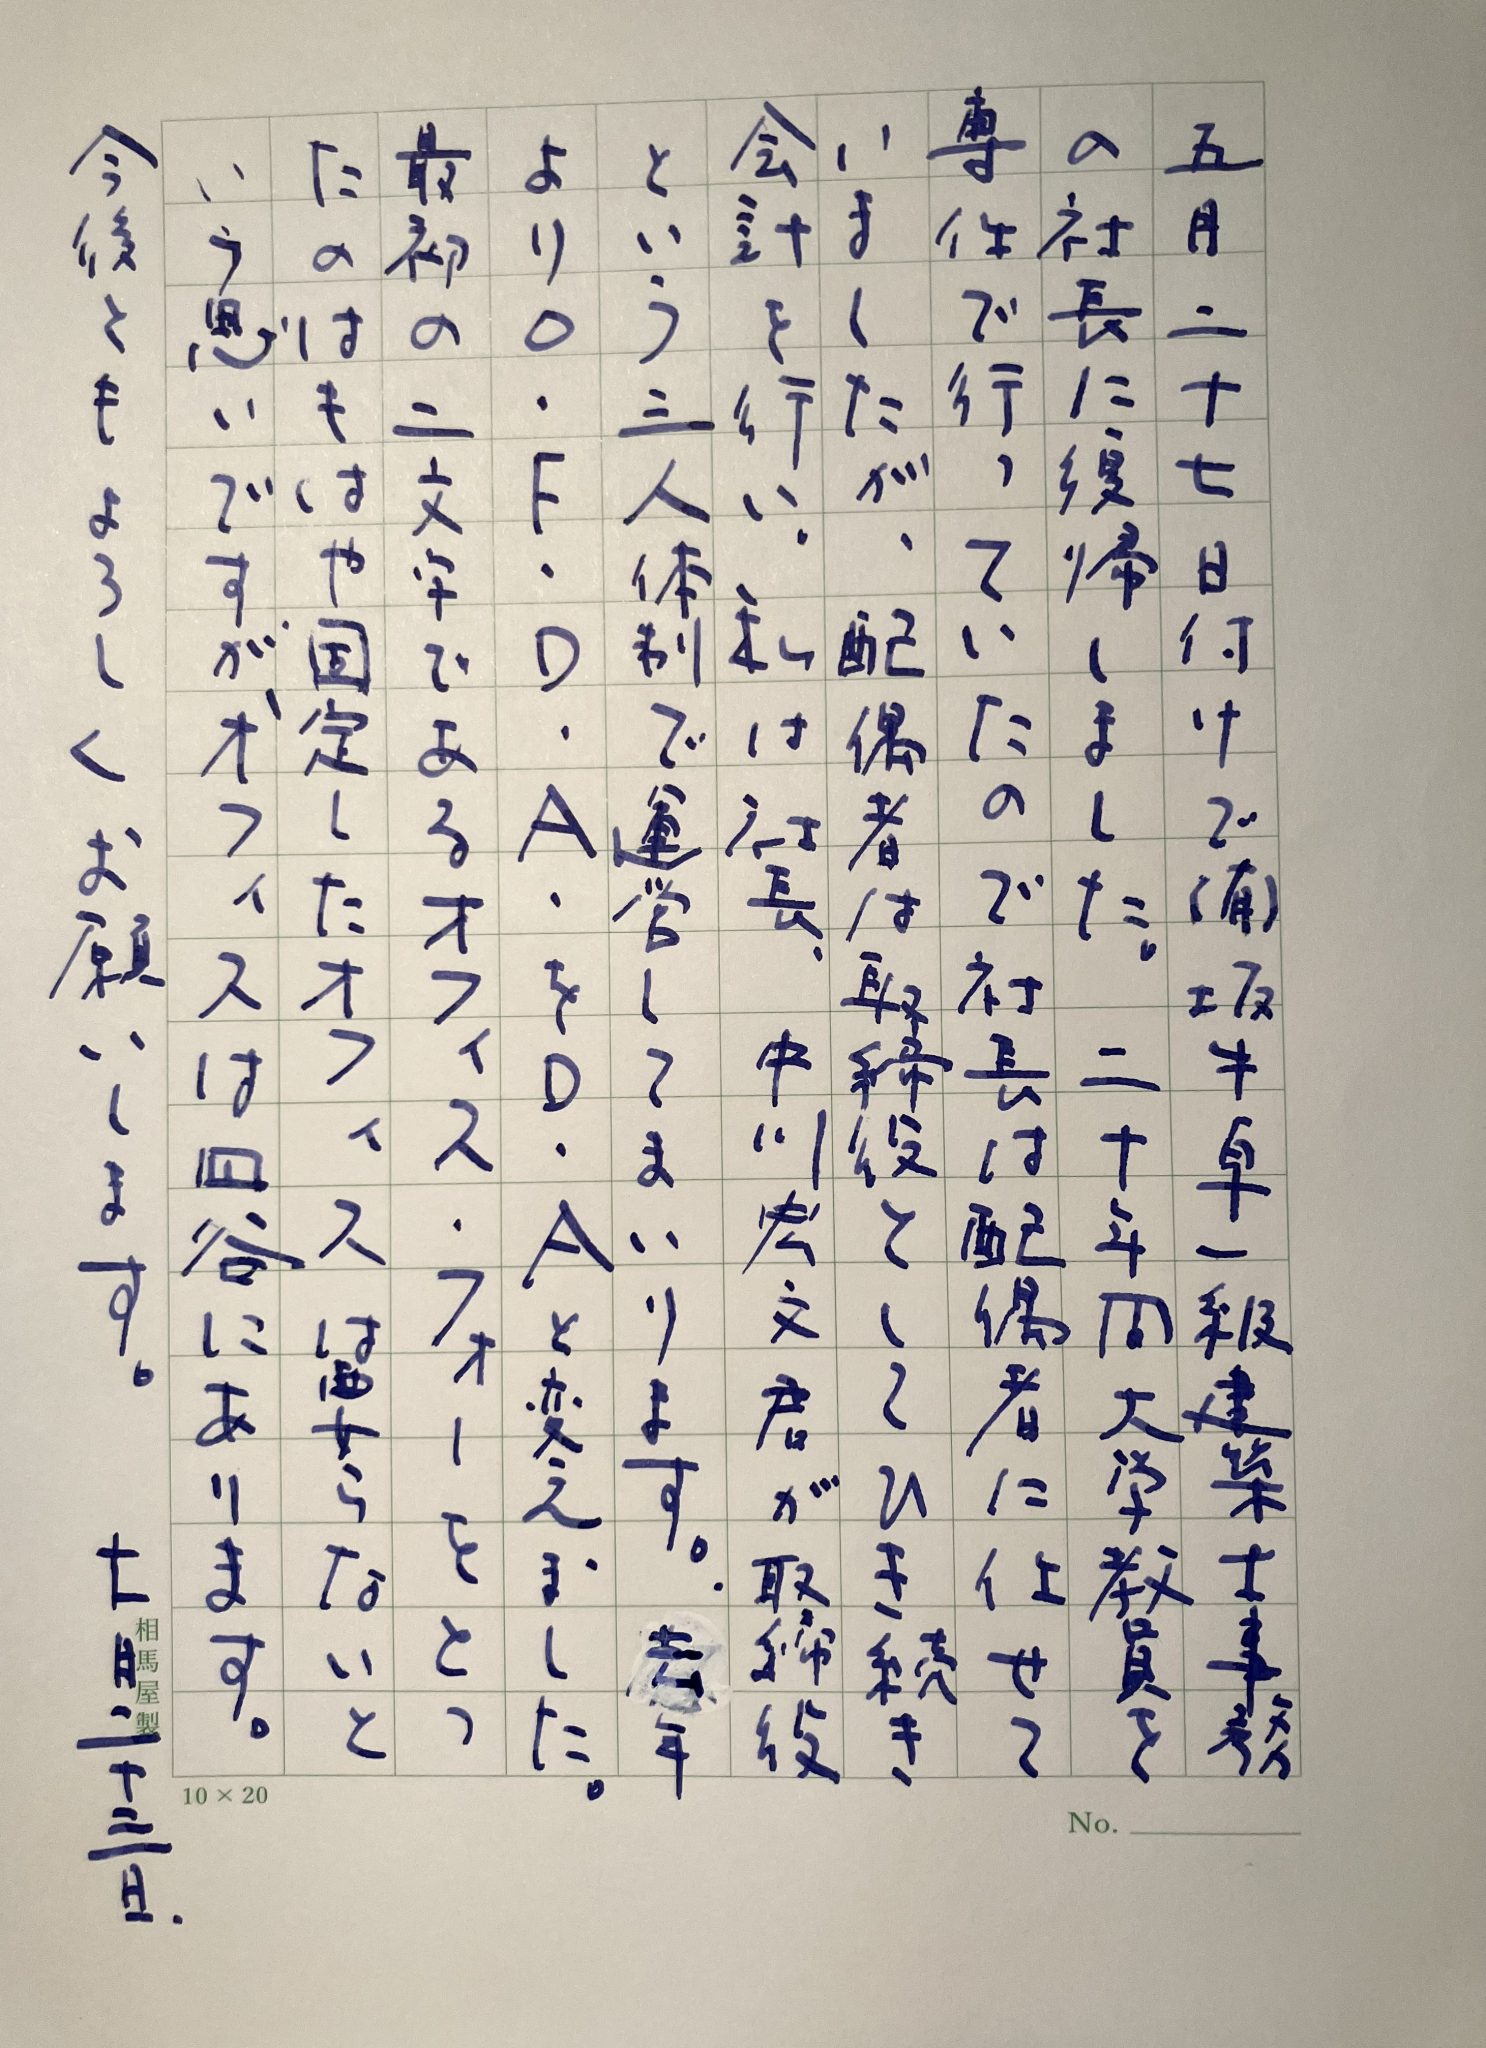 五月二十七日付けで(有)坂牛卓一級建築士事務
の社長に復帰しました。 二十年間大学教員を
専任で行っていたので社長は配偶者に任せて
いましたが、配偶者は取締役としてひき続き
会計を行い、私は社長、中川宏文君が取締役
という三人体制で運営してまいります。去年
よりO・F・D・AをD・Aと変えました。
最初の二文字であるオフィス・フォーをとっ
たのはもはや固定したオフィスは要らないと
いう思いですが、オフィスは四谷にあります。
今後ともよろしくお願いします。 七月二十三日.
相馬屋製
10×20
No.